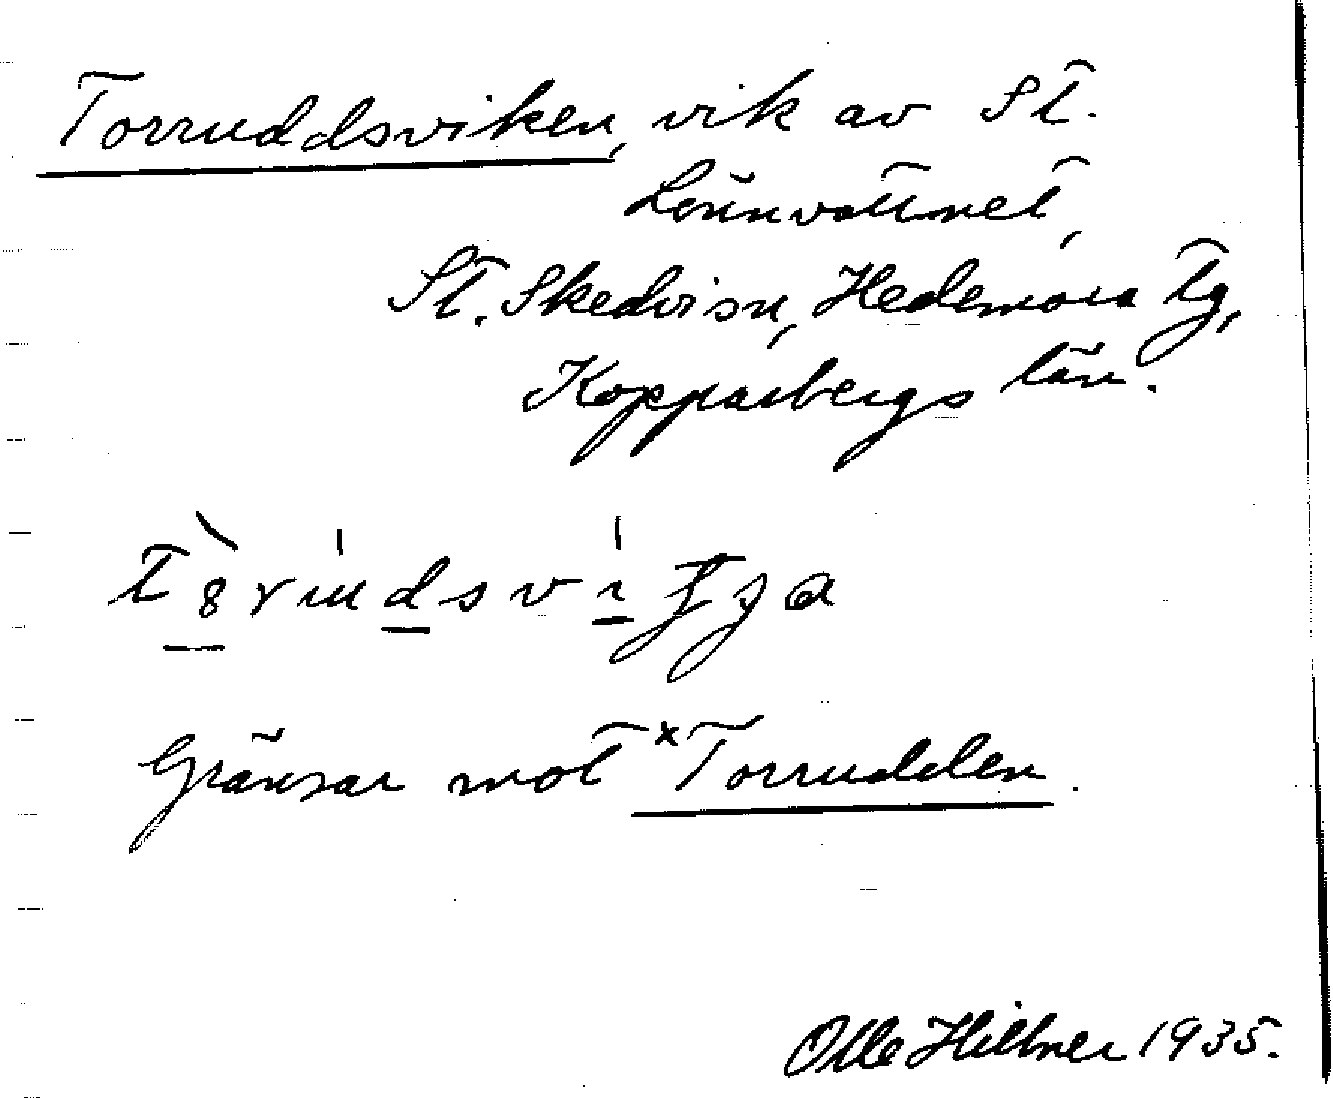 Torruddsviken, vik av St.
Lönnvattnet,
St. Skedvi sn, Hedemora tg,
Kopparbergs län.
Gränsar mot ˣTorrudden.
Olle Hillner 1935.